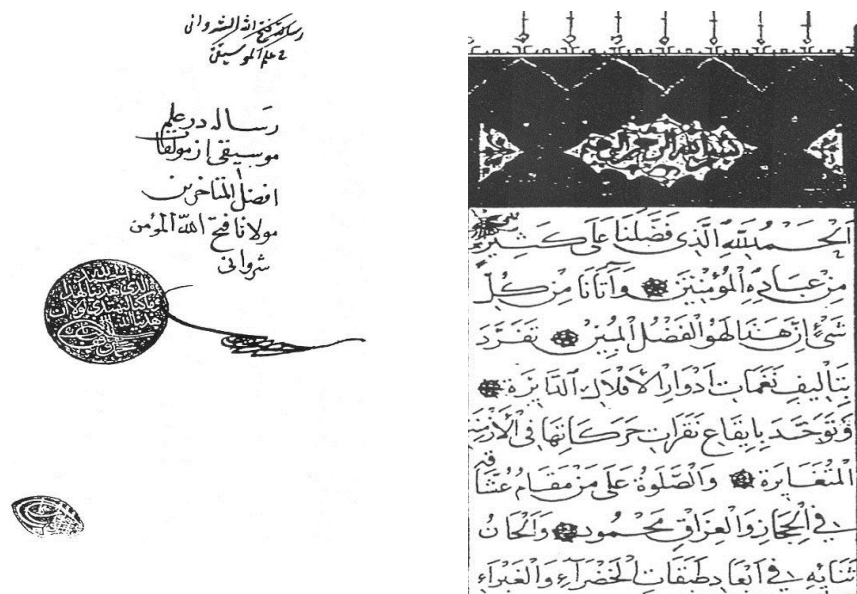 رسالة فتح الله الشرواني
في علم الموسيقى
رسَاله در علم
موسيقى از مولفات
افضل المتاخرين
مولانا فتح الله المؤمن
شروانى
بسم الله الرحمن الرحيم
اَلْحَمْدُ لِلّٰهِ الَّذِى فَضَّلَنَا عَلَى كَثِيرٍ
مِنْ عِبَادِهِ الْمُؤْمِنِينَ وَآتَانَا مِنْ كُلِّ
شَىْءٍ اِنَّ هَذَا لَهُوَ الْفَضْلُ الْمُبِينُ تَفَرَّدَ
بِتَالِيفِ نَغَمَاتِ اَدْوَارِ الْاَفْلَاكِ الدَّايِرَةِ
وَتَوَحَّدَ بِاِيقَاعِ نَقَرَاتِ حَرَكَاتِهَا فِى الْاَزْمِنَةِ
الْمُتَغَايِرَةِ وَالصَّلَوةُ عَلَى مَنْ مَقَامُ عُشَّاقِهِ
فِى الْحِجَازِ وَالْعِرَاقِ مَحْمُودٌ وَاَلْحَانُ
ثَنَايِهِ فِى اَبْعَادِ طَبَقَاتِ الْخَضْرَاءِ وَالْغَبْرَاءِ